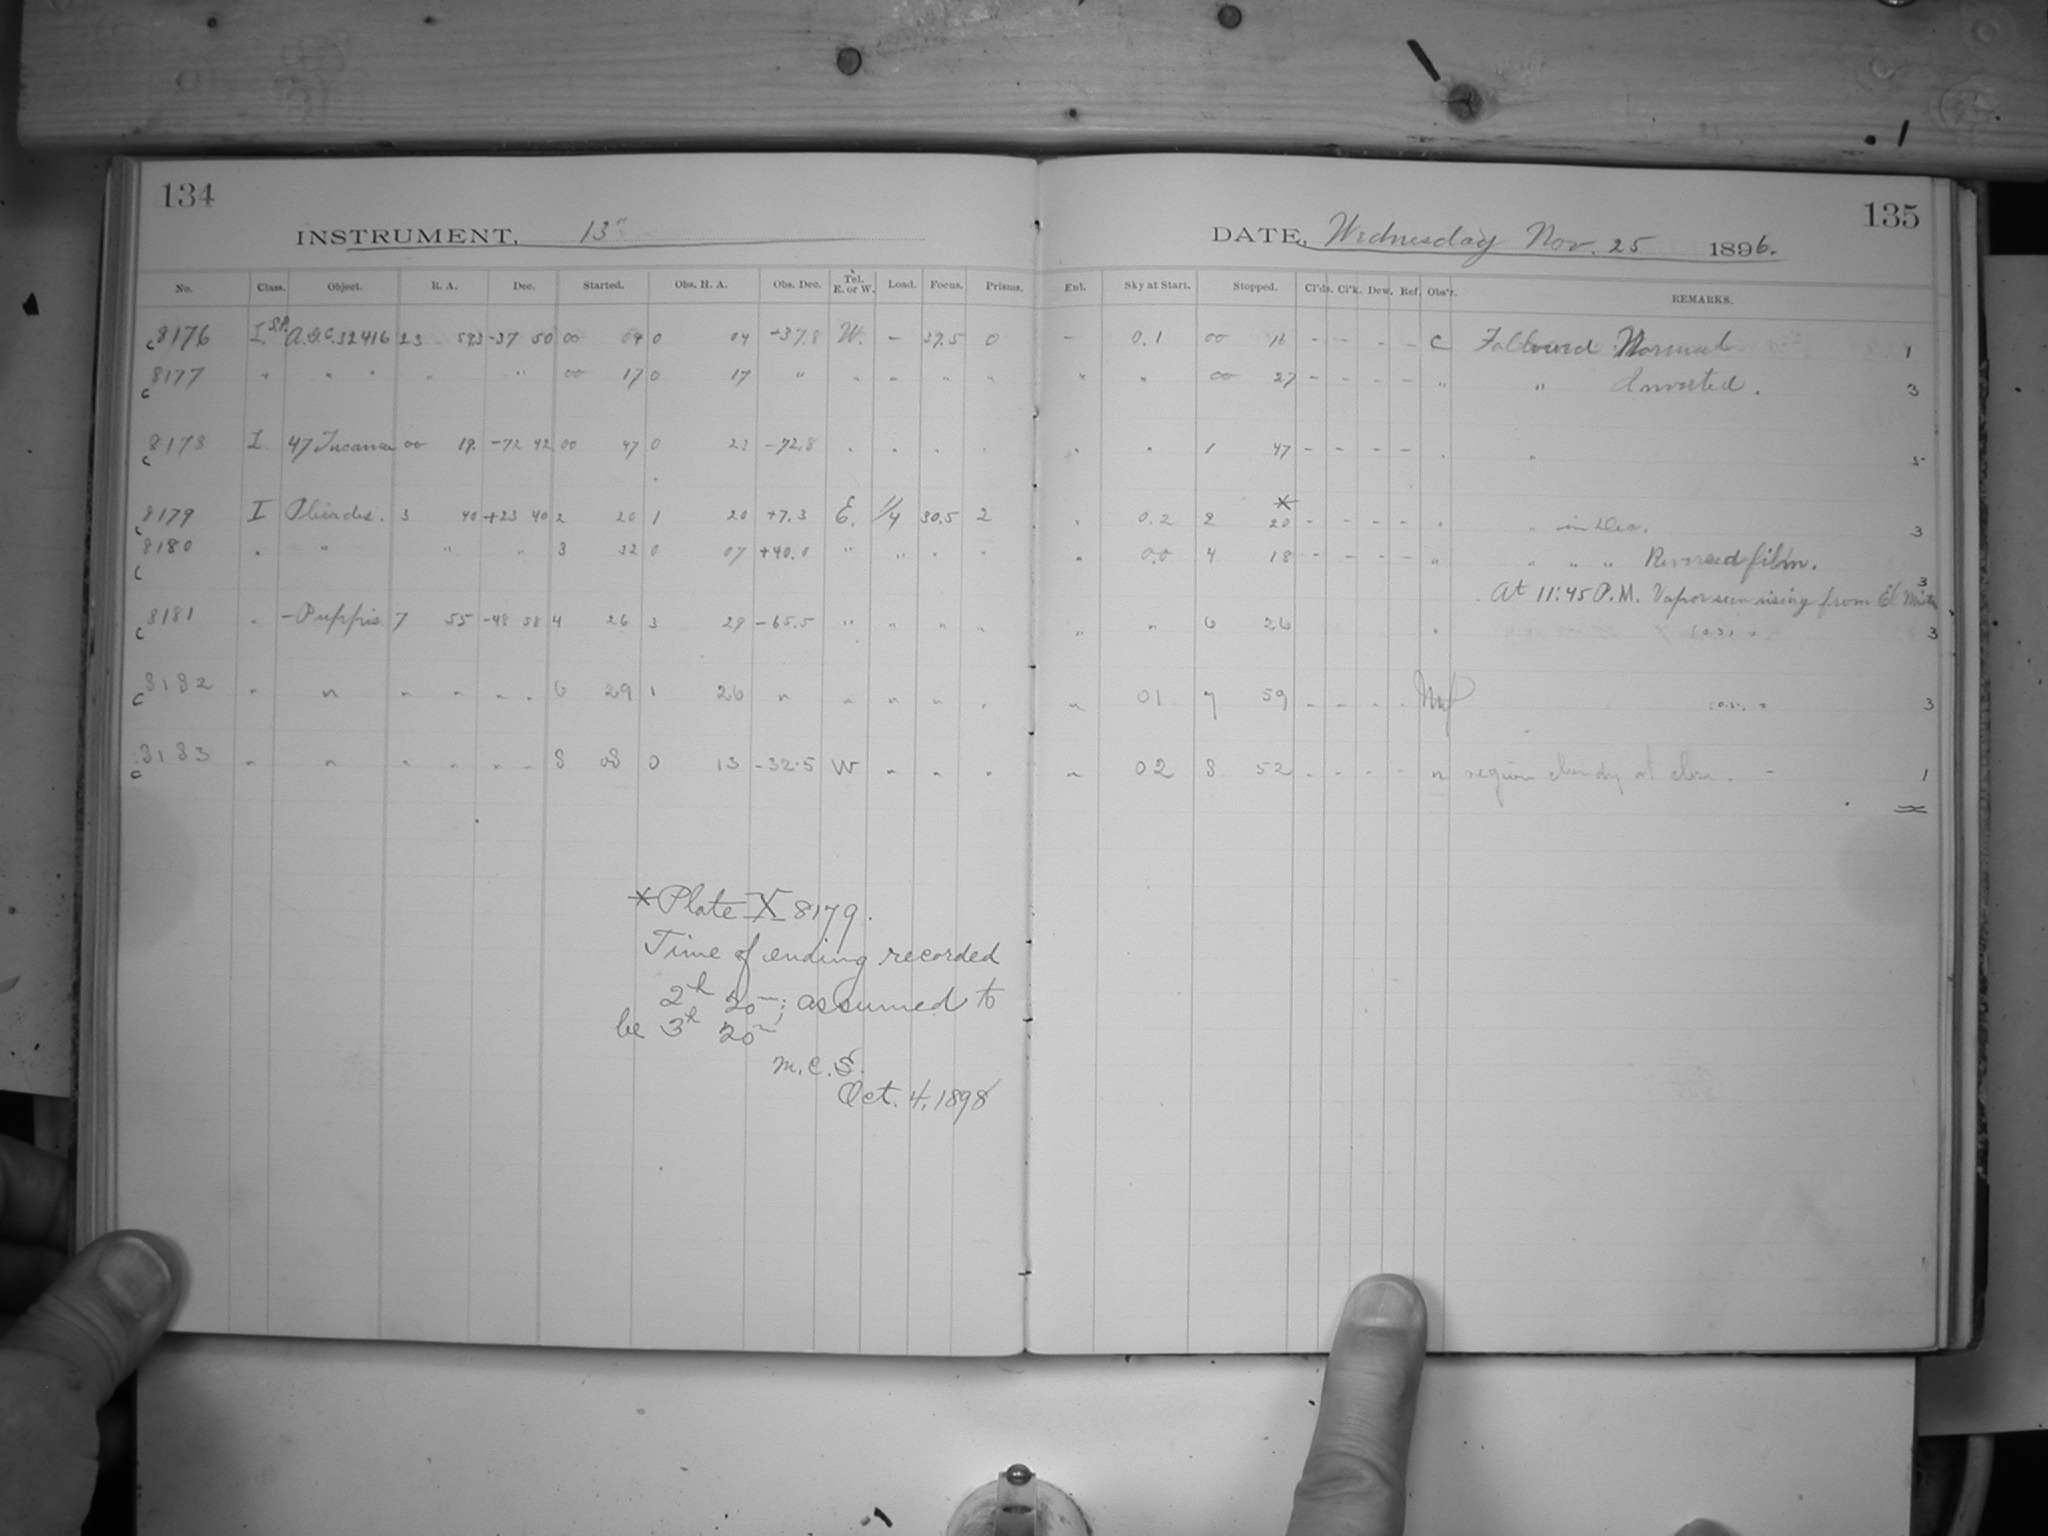 134
INSTRUMENT, 13"
No. Class. Object. R. A. Dec. Started. Obs. H. A. Obs. Dec. Tel. E. or W. Load. Focus. Prisms.
c8176 I S.P. A.G.C. 32416 23 59.3 -37 50 00 04 0 04 -37.8 W. - 39.5 0
c8177 " " " " " 00 17 0 17 " " " " "
c8178 I. 47 Tucanae 00 19. -72 42 00 47 0 23 -72.8 " " " "
c8179 I Pleiades. 3 40 +23 40 2 20 1 20 +7.3 E. 1/4 30.5 2
c8180 " " " " 3 32 0 07 +40.0 " " " "
c8181 " - Puppis 7 55 -48 58 4 26 3 29 -65.5 " " " "
c8182 " " " " " " 6 29 1 26 " " " " "
c8183 " " " " " " 8 08 0 13 -32.5 W " " "
*Plate X 8179.
Time of ending recorded
2h 20m; assumed to
be 3h 20m
M.C.S.
Oct. 4, 1898
135
DATE, Wednesday Nov. 25 1896.
Enl. Sky at Start. Stopped. Cl'ds. Cl'k. Dew. Ref. Obs'r. REMARKS.
- 0.1 00 16 - - - - C Followed Normal. 1
" " 00 27 - - - - " " Inverted. 3
" " 1 47 - - - - " " 5
" 0.2 2 *20 - - - - " " in Dec. 3
" 0.0 4 18 - - - - " " " " Reversed film. 3
At 11:45 P.M. Vapor seen rising from El Misti
" " 6 26 " 3
" 01 7 59 - - - - 3
" 02 8 52 - - - - " region cloudy at close. - 1